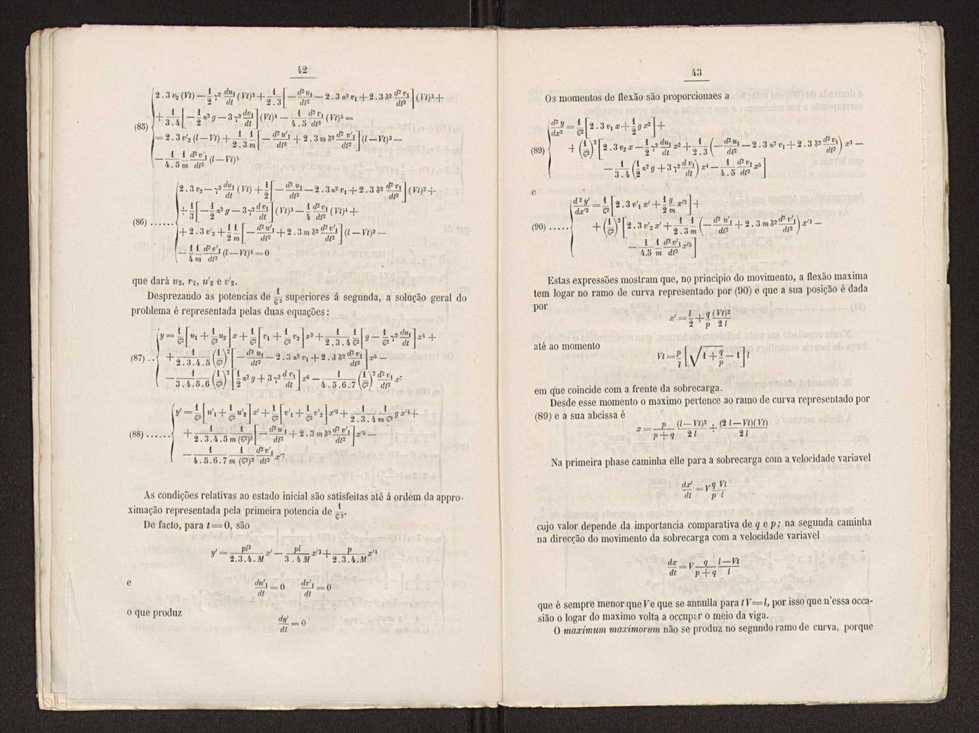 42
(85) { 2.3 v₂ (Vt) − 1/2 γ² du₁/dt (Vt)² + 1/2.3 [ − d²u₁/dt² − 2.3 a² v₁ + 2.3 b² d²v₁/dt² ] (Vt)³ +
+ 1/3.4 [ − 1/2 a² g − 3 γ² dv₁/dt ] (Vt)⁴ − 1/4.5 d²v₁/dt² (Vt)⁵ =
= 2.3 v'₂ (l − Vt) + 1/2.3 1/m [ − d²u'₁/dt² + 2.3 m b² d²v'₁/dt² ] (l − Vt)³ −
− 1/4.5 1/m d²v'₁/dt² (l − Vt)⁵
(86) ...... { 2.3 v₂ − γ² du₁/dt (Vt) + 1/2 [ − d²u₁/dt² − 2.3 a² v₁ + 2.3 b² d²v₁/dt² ] (Vt)² +
+ 1/3 [ − 1/2 a² g − 3 γ² dv₁/dt ] (Vt)³ − 1/4 d²v₁/dt² (Vt)⁴ +
+ 2.3 v'₂ + 1/2 1/m [ − d²u'₁/dt² + 2.3 m b² d²v'₁/dt² ] (l − Vt)² −
− 1/4 1/m d²v'₁/dt² (l − Vt)⁴ = 0
que dará u₂, v₂, u'₂ e v'₂.
Desprezando as potencias de 1/ζ² superiores á segunda, a solução geral do
problema é representada pelas duas equações:
(87) .. { y = 1/ζ² [ u₁ + 1/ζ² u₂ ] x + 1/ζ² [ v₁ + 1/ζ² v₂ ] x³ + 1/2.3.4 1/ζ² [ g − 1/ζ² γ² du₁/dt ] x⁴ +
+ 1/2.3.4.5 (1/ζ²)² [ − d²u₁/dt² − 2.3 a² v₁ + 2.3 b² d²v₁/dt² ] x⁵ −
− 1/3.4.5.6 (1/ζ²)² [ 1/2 a² g + 3 γ² dv₁/dt ] x⁶ − 1/4.5.6.7 (1/ζ²)² d²v₁/dt² x⁷
(88) ...... { y' = 1/ζ² [ u'₁ + 1/ζ² u'₂ ] x' + 1/ζ² [ v'₁ + 1/ζ² v'₂ ] x'³ + 1/2.3.4 1/m ζ² g x'⁴ +
+ 1/2.3.4.5 1/m (ζ²)² [ − d²u'₁/dt² + 2.3 m b² d²v'₁/dt² ] x'⁵ −
− 1/4.5.6.7 1/m (ζ²)² d²v'₁/dt² x'⁷
As condições relativas ao estado inicial são satisfeitas até á ordem da appro-
ximação representada pela primeira potencia de 1/ζ².
De facto, para t = 0, são
y' = pl³/2.3.4.M x' − pl/3.4.M x'³ + p/2.3.4.M x'⁴
e du'₁/dt = 0 dv'₁/dt = 0
o que produz
dy'/dt = 0
43
Os momentos de flexão são proporcionaes a
(89) { d²y/dx² = 1/ζ² [ 2.3 v₁ x + 1/2 g x² ] +
+ (1/ζ²)² [ 2.3 v₂ x − 1/2 γ² du₁/dt x² + 1/2.3 ( − d²u₁/dt² − 2.3 a² v₁ + 2.3 b² d²v₁/dt² ) x³ −
− 1/3.4 ( 1/2 a² g + 3 γ² dv₁/dt ) x⁴ − 1/4.5 d²v₁/dt² x⁵ ]
e
(90) ...... { d²y'/dx'² = 1/ζ² [ 2.3 v'₁ x' + 1/2 g/m x'² ] +
+ (1/ζ²)² [ 2.3 v'₂ x' + 1/2.3 1/m ( − d²u'₁/dt² + 2.3 m b² d²v'₁/dt² ) x'³ −
− 1/4.5 1/m d²v'₁/dt² x'⁵ ]
Estas expressões mostram que, no principio do movimento, a flexão maxima
tem logar no ramo de curva representado por (90) e que a sua posição é dada
por
x' = l/2 + q/p (Vt)²/2l
até ao momento
Vt = p/l [ √(1 + q/p) − 1 ] l
em que coincide com a frente da sobrecarga.
Desde esse momento o maximo pertence ao ramo de curva representado por
(89) e a sua abcissa é
x = p/p+q (l − Vt)²/2l + (2l − Vt)(Vt)/2l
Na primeira phase caminha elle para a sobrecarga com a velocidade variavel
dx'/dt = V q/p Vt/l
cujo valor depende da importancia comparativa de q e p; na segunda caminha
na direcção do movimento da sobrecarga com a velocidade variavel
dx/dt = V q/p+q l − Vt/l
que é sempre menor que V e que se annulla para tV = l, por isso que n'essa occa-
sião o logar do maximo volta a occupar o meio da viga.
O maximum maximorum não se produz no segundo ramo de curva, porque